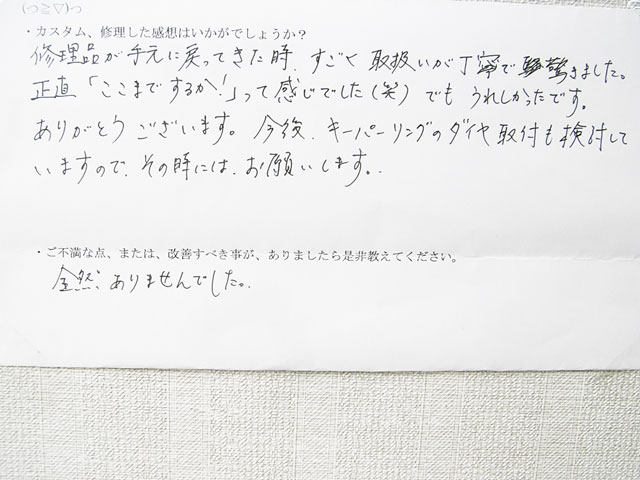 (っ≧▽)っ
・カスタム、修理した感想はいかがでしょうか？
修理品が手元に戻ってきた時、すごく取扱いが丁寧で驚きました。
正直「ここまでするか!」って感じでした(笑)でもうれしかったです。
ありがとうございます。今後、キーパーリングのダイヤ取付も検討して
いますので、その時には、お願いします。
・ご不満な点、または、改善すべき事が、ありましたら是非教えてください。
全然、ありませんでした。